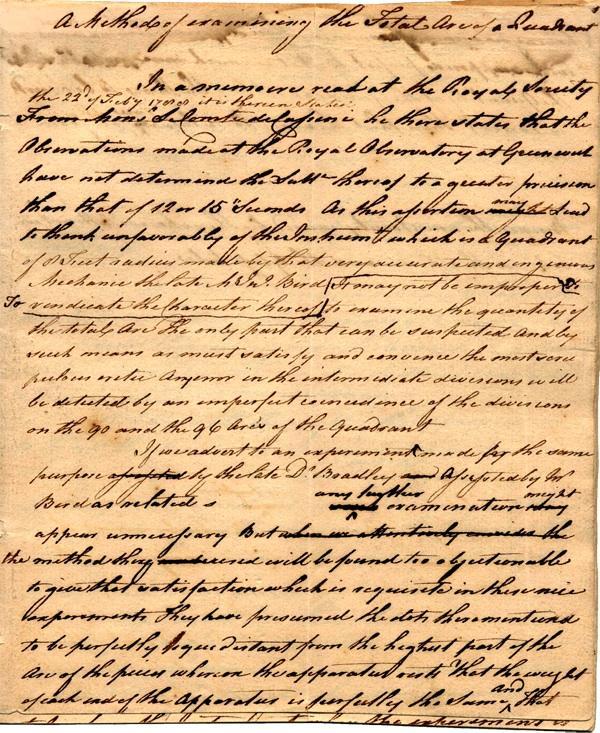 A Method of examining the Total Arc of a Quadrant
In a memoire read at the Royal Society
the 22d of Feby 1788 it is therein Stated
From Mons. Le Comte de Cassini he there states that the
Observations made at the Royal Observatory at Greenwich
have not determind the Latt. thereof to a greater precision
than that of 12 or 15 Seconds As this asertion may Lead
to think unfavorably of the Instrumt. which is a Quadrant
of 8 Feet radius made by that very accurate and ingenious
Mechanic the late Mr. Jno. Bird it may not be improper to
To vindicate the Character thereof to examine the quantity of
the total Arc the only part that can be suspected and by
such means as must satisfy and convence the most scru
pulous critic Any error in the intermediate divisions will
be detected by an imperfect coincidence of the divisions
on the 90 and the 96 Arcs of the Quadrant
If we advert to an experiment made for the same
purpose by the late Dr. Bradley and Assisted by Mr
Bird as related any further examination might
appear unnecessary But when we attentively the
the method they used will be found too objectionable
to give that satisfaction which is requisite in these nice
experiments They have presumed the dots there mentiond
to be perfectly equidistant from the highest part of the
Arc of the pieces whereon the apparatus rests That the weight
of each end of the Apparatus is perfectly the Same and That
the experiment is